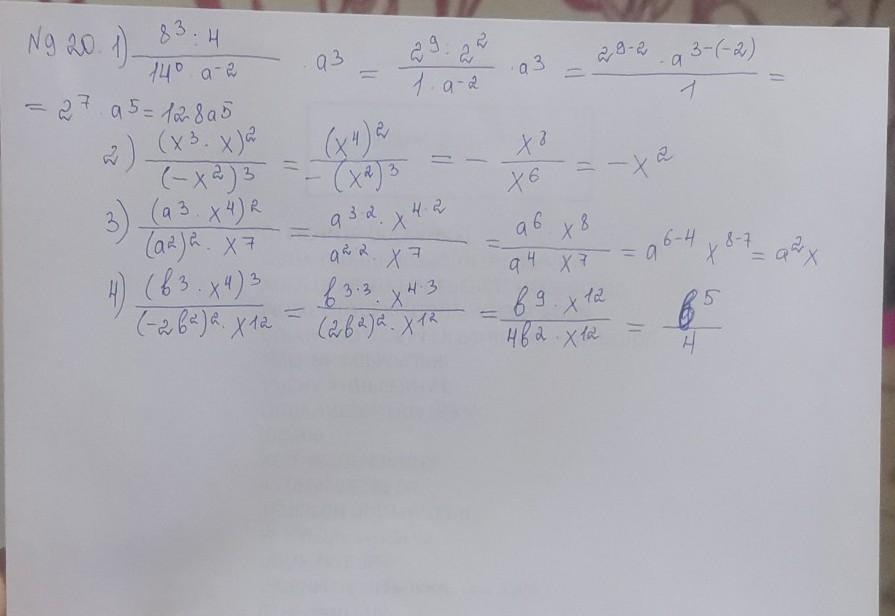 №920. 1) (8³ : 4)/(14⁰ · a⁻²) · a³ = (2⁹ : 2²)/(1 · a⁻²) · a³ = (2⁹⁻² · a³⁻⁽⁻²⁾)/1 =
= 2⁷ · a⁵ = 128a⁵
2) (x³ · x)²/(-x²)³ = (x⁴)²/-(x²)³ = - x⁸/x⁶ = -x²
3) (a³ · x⁴)²/((a²)² · x⁷) = (a³·² · x⁴·²)/(a²·² · x⁷) = (a⁶ · x⁸)/(a⁴ x⁷) = a⁶⁻⁴ x⁸⁻⁷ = a²x
4) (b³ · x⁴)³/((-2b²)² · x¹²) = (b³·³ · x⁴·³)/((2b²)² · x¹²) = (b⁹ · x¹²)/(4b² · x¹²) = b⁵/4